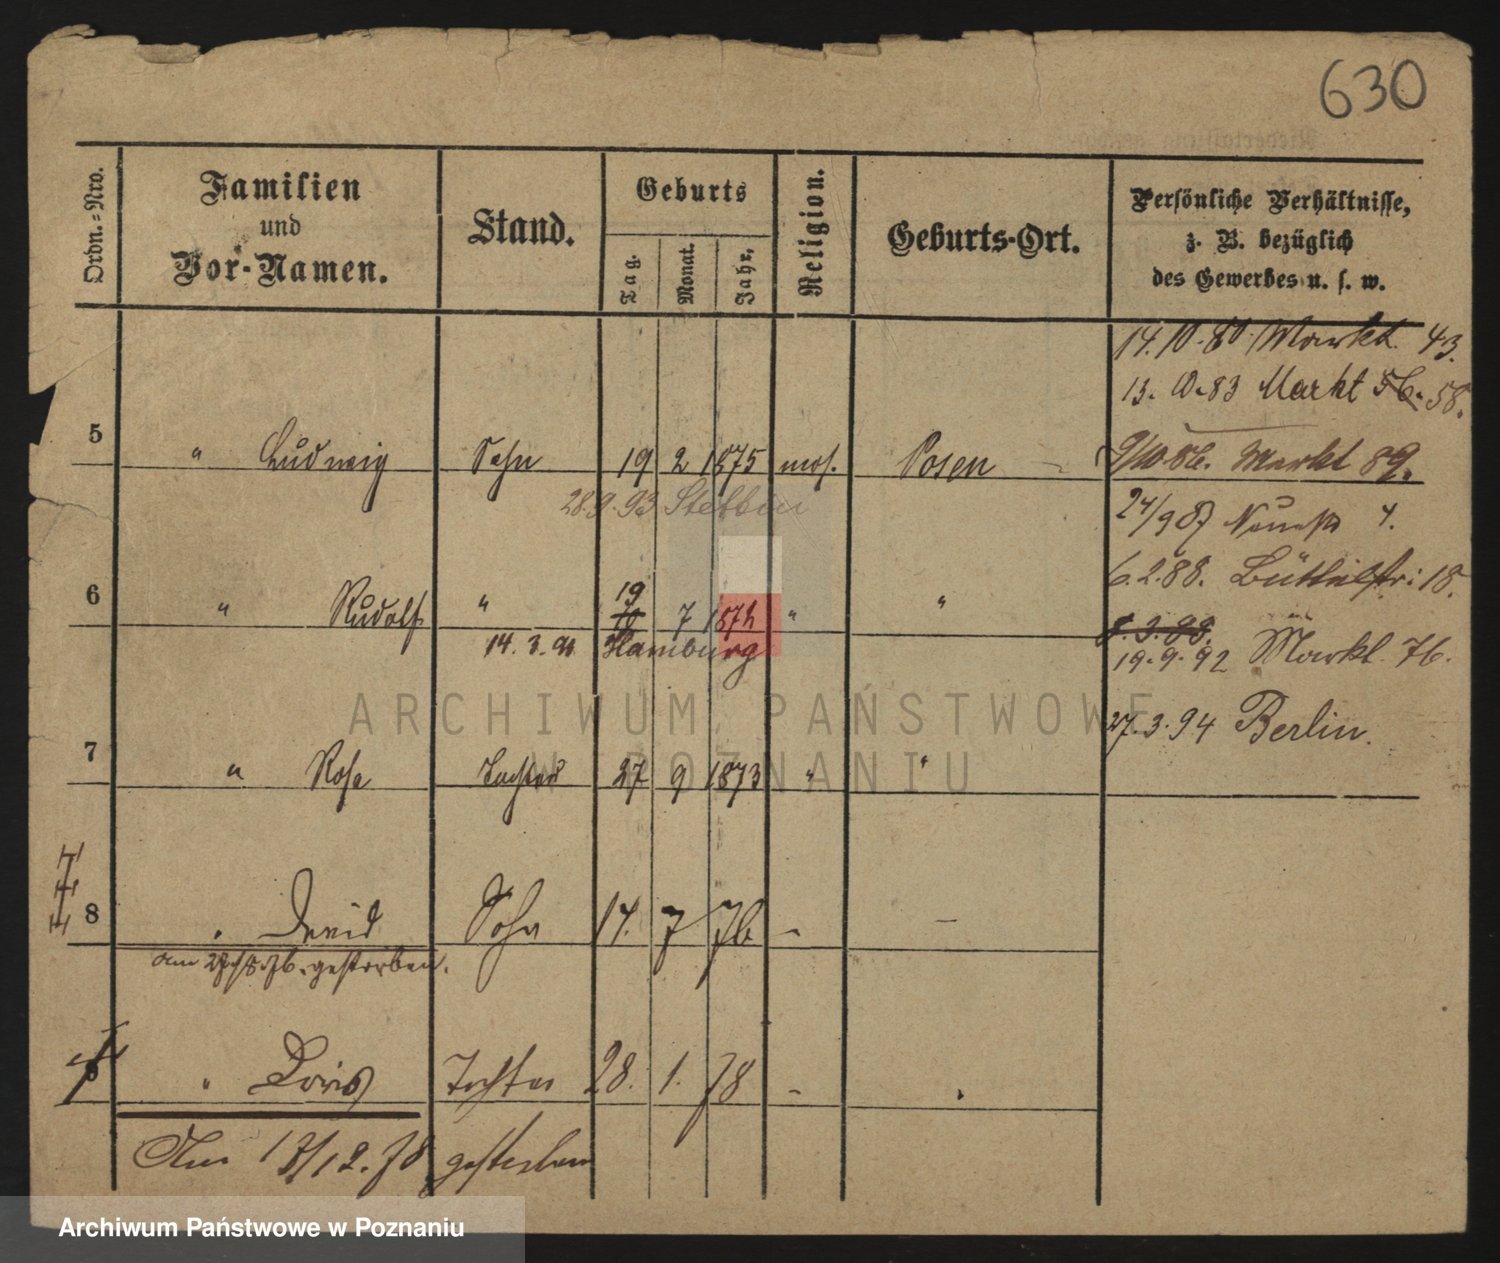 630
Ordn.-Nro.
Familien
und
Vor-Namen.
Stand.
Geburts
Tag.
Monat.
Jahr.
Religion.
Geburts-Ort.
Persönliche Verhältnisse,
z. B. bezüglich
des Gewerbes u. s. w.
14.10.80. Markt 43.
13. 83 Markt 58.
5 " Ludwig Sohn 19 2 1875 mos. Posen
9/10 86. Markt 89.
28.9.93 Stettin
24/9 87 4.
6.2.88. Büttelstr: 18.
6 " Rudolf " 19 7 1872 " "
8.3.88.
14.3.91 Hamburg
19.9.92 Markt 76.
27.3.94 Berlin.
7 " Rosa Tochter 27 9 1873 " "
8 " David Sohn 14. 7 76 - -
am gestorben.
" Doris Tochter 28. 1. 78 -
Am 13/12.78 gestorben
ARCHIWUM PAŃSTWOWE
W POZNANIU
Archiwum Państwowe w Poznaniu